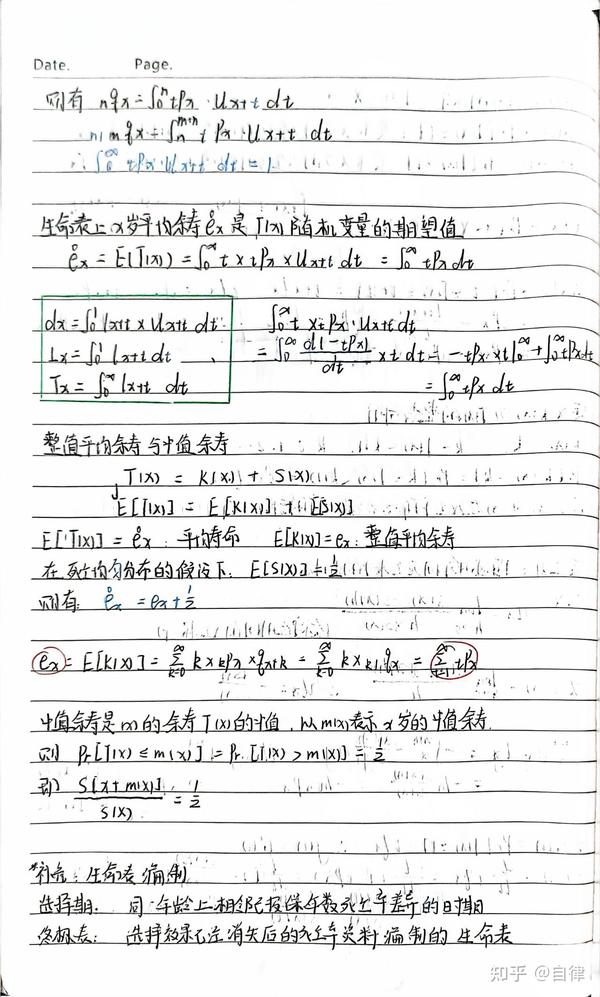 Date. Page.
则有 nqx = ∫₀ⁿ tPx · Ux+t dt
n|mqx = ∫ₙᵐ⁺ⁿ tPx · Ux+t dt
∴ ∫₀^∞ tPx · Ux+t dt = 1
生命表上x岁平均余寿 e̊x 是 T(x)随机变量的期望值
e̊x = E(T(x)) = ∫₀^∞ t × tPx × Ux+t dt = ∫₀^∞ tPx dt
dx = ∫₀¹ lx+t × Ux+t dt
Lx = ∫₀¹ lx+t dt
Tx = ∫₀^∞ lx+t dt
∫₀^∞ t × tPx · Ux+t dt
= ∫₀^∞ d(-tPx)/dt × t dt = -tPx × t|₀^∞ + ∫₀^∞ tPx dt
= ∫₀^∞ tPx dt
整值平均余寿与中值余寿
T(x) = K(x) + S(x)
E[T(x)] = E[K(x)] + E[S(x)]
E[T(x)] = e̊x : 平均寿命 E[K(x)] = ex : 整值平均余寿
在死亡均匀分布的假设下: E[S(x)] = 1/2
则有: e̊x = ex + 1/2
ex = E[K(x)] = ∑_{k=0}^∞ k × kPx × qx+k = ∑_{k=0}^∞ k × k|qx = ∑ tPx
中值余寿是(x)的余寿T(x)的中值, 以m(x)表示x岁的中值余寿.
则 Pr[T(x) ≤ m(x)] = Pr[T(x) > m(x)] = 1/2
即 S[x+m(x)]/S(x) = 1/2
*补充: 生命表编制
选择期: 同一年龄上相邻已投保年数死亡率差异的时期
终极表: 选择效果已经消失后的死亡率资料编制的生命表
知乎 @自律